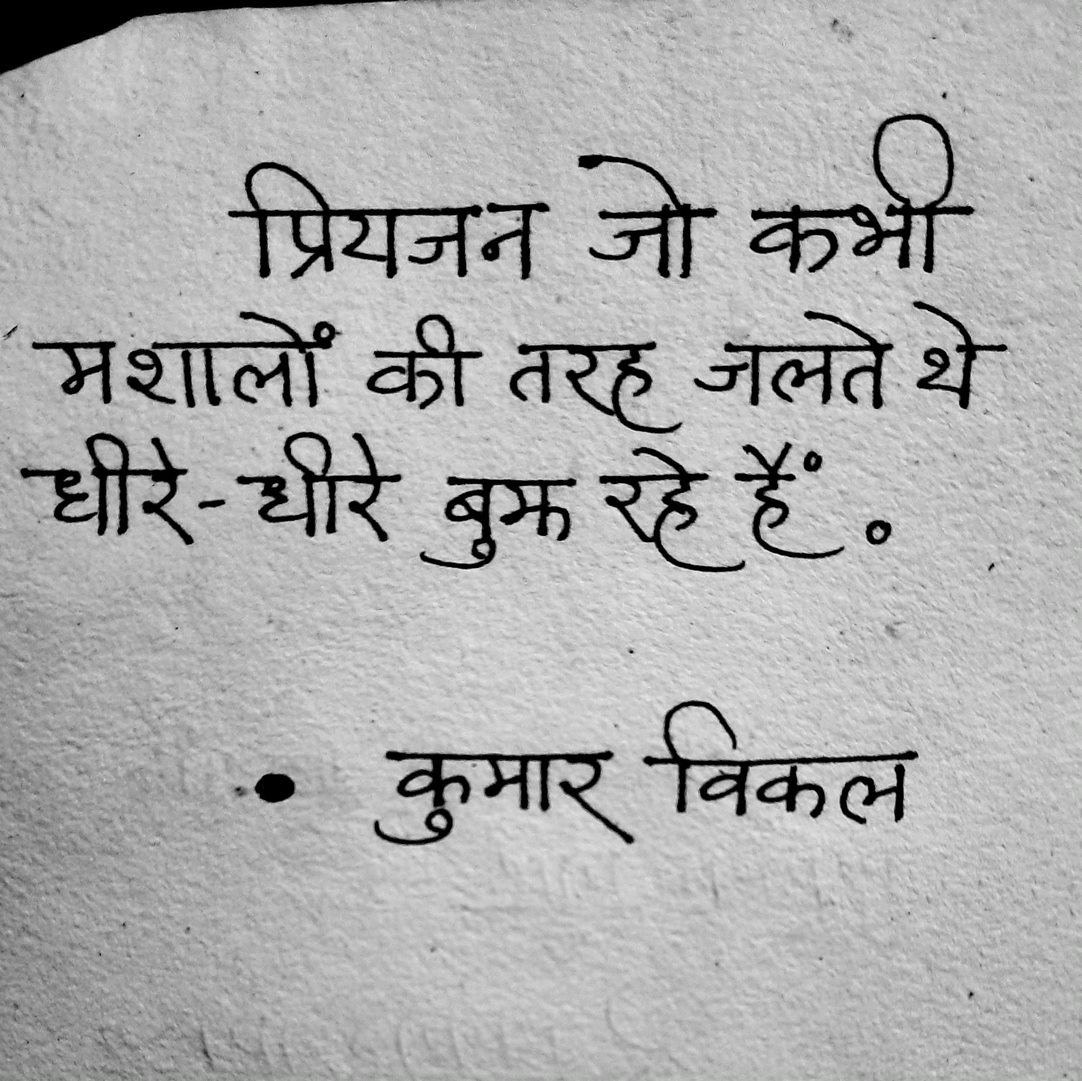 प्रियजन जो कभी
मशालों की तरह जलते थे
धीरे-धीरे बुझ रहे हैं.
• कुमार विकल